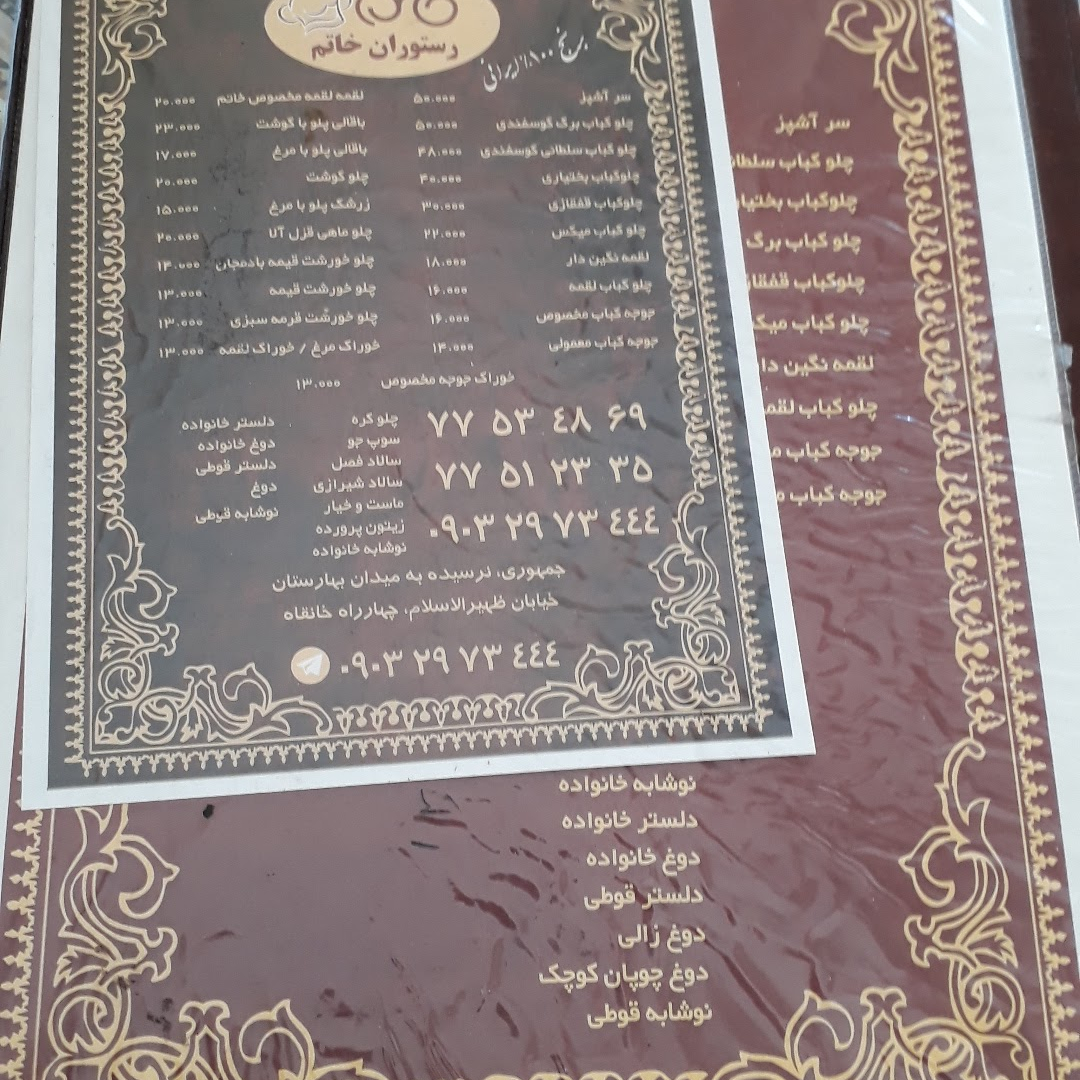 رستوران خاتم
برنج ۱۰۰٪ ایرانی
سر آشپز ۵۰.۰۰۰
چلو کباب برگ گوسفندی ۵۰.۰۰۰
چلو کباب سلطانی گوسفندی ۴۸.۰۰۰
چلوکباب بختیاری ۴۰.۰۰۰
چلوکباب قفقازی ۳۰.۰۰۰
چلو کباب میکس ۲۲.۰۰۰
لقمه نگین دار ۱۸.۰۰۰
چلو کباب لقمه ۱۶.۰۰۰
جوجه کباب مخصوص ۱۶.۰۰۰
جوجه کباب معمولی ۱۴.۰۰۰
لقمه لقمه مخصوص خاتم ۲۰.۰۰۰
باقالی پلو با گوشت ۲۳.۰۰۰
باقالی پلو با مرغ ۱۷.۰۰۰
چلو گوشت ۲۰.۰۰۰
زرشک پلو با مرغ ۱۵.۰۰۰
چلو ماهی قزل آلا ۲۰.۰۰۰
چلو خورشت قیمه بادمجان ۱۴.۰۰۰
چلو خورشت قیمه ۱۳.۰۰۰
چلو خورشت قرمه سبزی ۱۳.۰۰۰
خوراک مرغ / خوراک لقمه ۱۳.۰۰۰
خوراک جوجه مخصوص ۱۳.۰۰۰
۷۷ ۵۳ ۴۸ ۶۹
۷۷ ۵۱ ۲۳ ۳۵
۰۹۰۳ ۲۹ ۷۳ ۴۴۴
چلو کره
سوپ جو
سالاد فصل
سالاد شیرازی
ماست و خیار
زیتون پرورده
نوشابه خانواده
دلستر خانواده
دوغ خانواده
دلستر قوطی
دوغ
نوشابه قوطی
جمهوری، نرسیده به میدان بهارستان
خیابان ظهیرالاسلام، چهارراه خانقاه
۰۹۰۳ ۲۹ ۷۳ ۴۴۴
سر آشپز
چلو کباب سلطا
چلوکباب بختیا
چلو کباب برگ
چلوکباب قفقا
چلو کباب میک
لقمه نگین دا
چلو کباب لقم
جوجه کباب م
جوجه کباب م
نوشابه خانواده
دلستر خانواده
دوغ خانواده
دلستر قوطی
دوغ زالی
دوغ چوپان کوچک
نوشابه قوطی